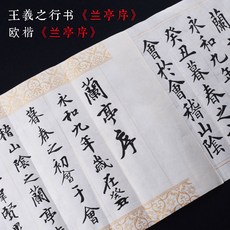 王羲之行书《兰亭序》
欧楷《兰亭序》
永和九年
癸丑暮春之
會於會稽山陰
蘭亭序
永和九年歲在癸
暮春之初會于會
稽山陰之蘭亭